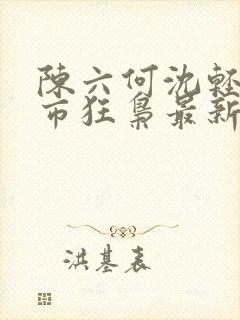 陳六何沈輕
市狂梟最新
洪基表